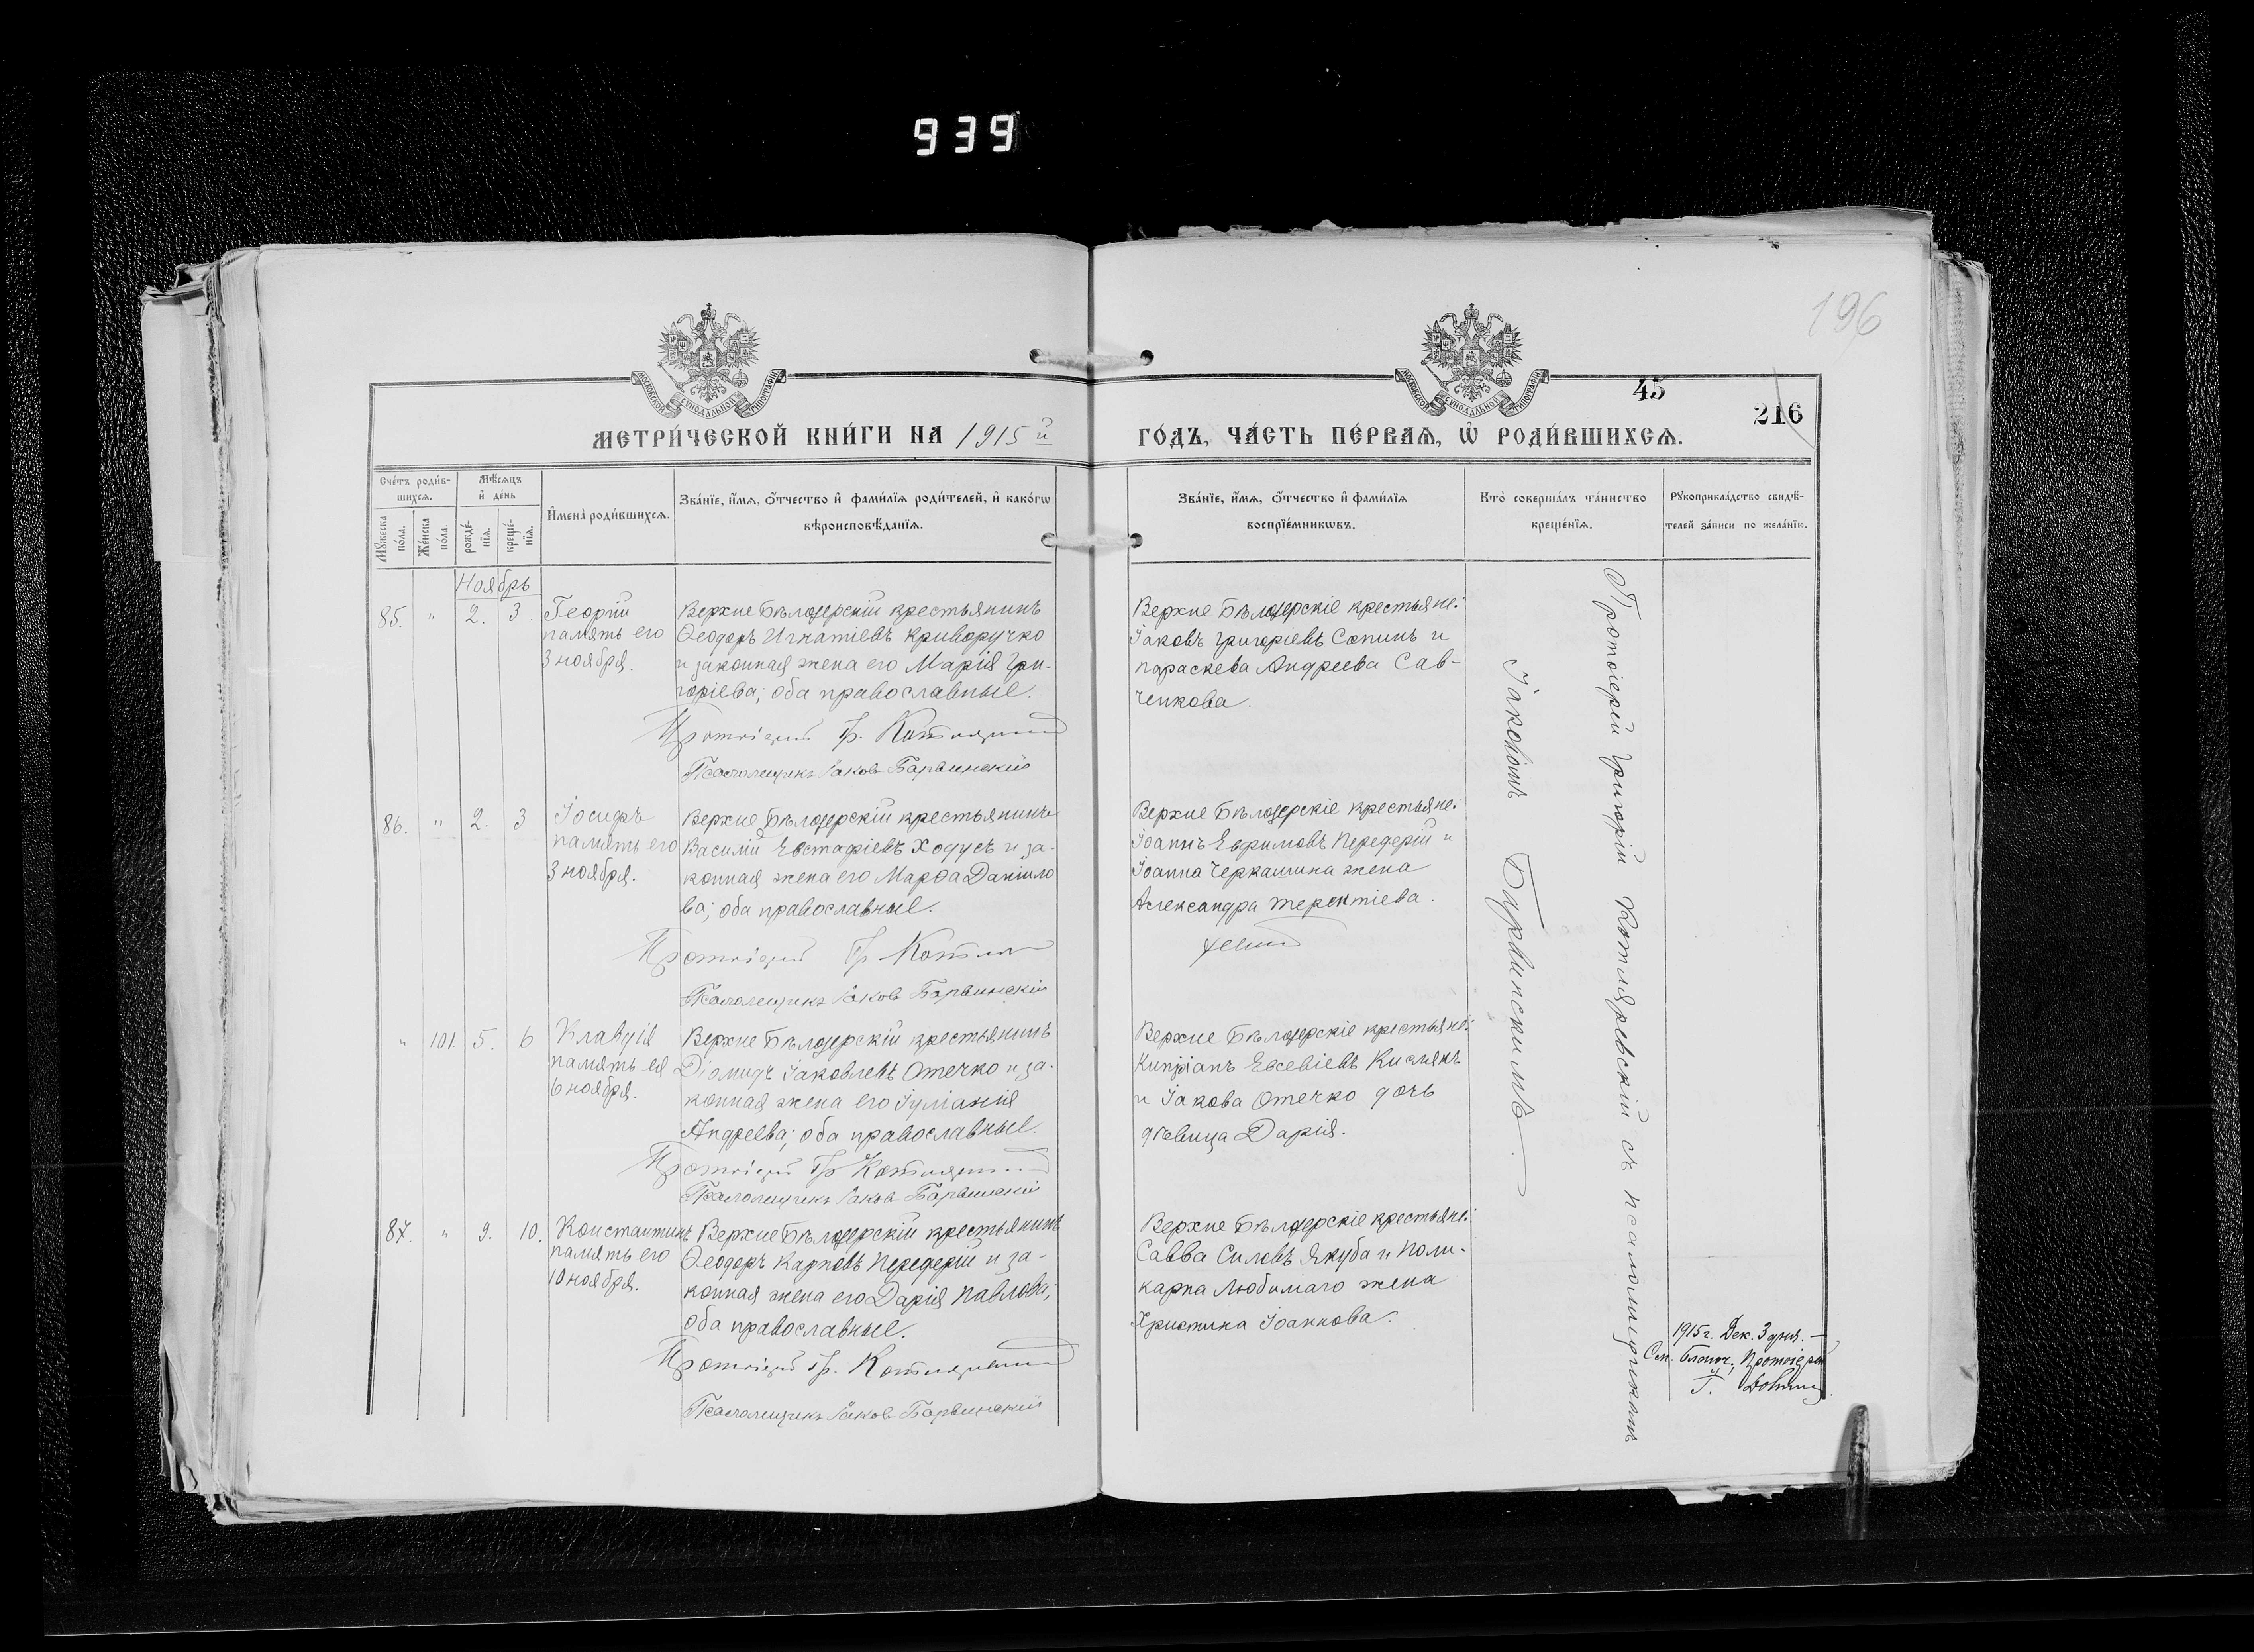 939
196
45
216
МЕТРИ́ЧЕСКОЙ КНИ́ГИ НА 1915й
ГО́ДЪ, ЧА́СТЬ ПЕ́РВАѦ, Ѡ РОДИ́ВШИХСѦ.
МОСКОВСКОЙ СѴНОДАЛЬНОЙ ТИПОГРАФІИ
МОСКОВСКОЙ СѴНОДАЛЬНОЙ ТИПОГРАФІИ
Сче́тъ роди́в-
шихсѧ.
Мѣ́сѧцъ
и҆ де́нь
Мꙋ́жеска по́ла.
Же́нска по́ла.
рожде́-
нїѧ.
креще́-
нїѧ.
И҆мена̀ роди́вшихсѧ.
Зва́нїе, и҆́мѧ, ѻ҆́тчество и҆ фами́лїѧ роди́телей, и҆ како́гѡ
вѣроисповѣ́данїѧ.
Зва́нїе, и҆́мѧ, ѻ҆́тчество и҆ фами́лїѧ
воспрїе́мникѡвъ.
Кто̀ соверша́лъ та́инство
креще́нїѧ.
Рꙋкоприкла́дство свидѣ́-
телей за́писи по жела́нїю.
Ноябрь
85. " 2. 3. Георгій
память его
3 ноября.
Верхне Бѣлозерскій крестьянинъ
Ѳеодоръ Игнатіевъ Криворучко
и законная жена его Марія Гри-
горіева; оба православные.
Протоіерей Гр. Котляревскій
Псаломщикъ Іаковъ Барвинскій
Верхне Бѣлозерскіе крестьяне:
Іаковъ Григоріевъ Сопинъ и
Параскева Андреева Сав-
ченкова.
86. " 2. 3 Іосифъ
память его
3 ноября.
Верхне Бѣлозерскій крестьянинъ
Василій Евстафіевъ Ходусъ и за-
конная жена его Марѳа Даніило
ва; оба православные.
Протоіерей Гр Котля
Псаломщикъ Іаковъ Барвинскій
Верхне Бѣлозерскіе крестьяне:
Іоаннъ Ефримовъ Передерій и
Іоанна Черкашина жена
Александра Терентіева.
" 101. 5. 6 Клавдія
память ея
6 ноября.
Верхне Бѣлозерскій крестьянинъ
Діомидъ Іаковлевъ Отечко и за-
конная жена его Іуліанія
Андреева; оба православные.
Протоіерей Гр Котляревскій
Псаломщикъ Іаковъ Барвинскій
Верхне Бѣлозерскіе крестьяне:
Кипріанъ Евсевіевъ Кисликъ
и Іакова Отечко дочь
дѣвица Дарія.
87. " 9. 10. Константинъ
память его
10 ноября.
Верхне Бѣлозерскій крестьянинъ
Ѳеодоръ Карповъ Передерій и за-
конная жена его Дарія Павлова;
оба православные.
Протоіерей Гр. Котляревскій
Псаломщикъ Іаковъ Барвинскій
Верхне Бѣлозерскіе крестьяне:
Савва Силовъ Якуба и Поли-
карпа Любимаго жена
Христина Іоаннова.
Протоіерей Григорій Котляревскій съ псаломщикомъ
Іаковомъ Барвинскимъ.
1915 г. Дек. 3 дня. —
См. Благоч. Протоіерей